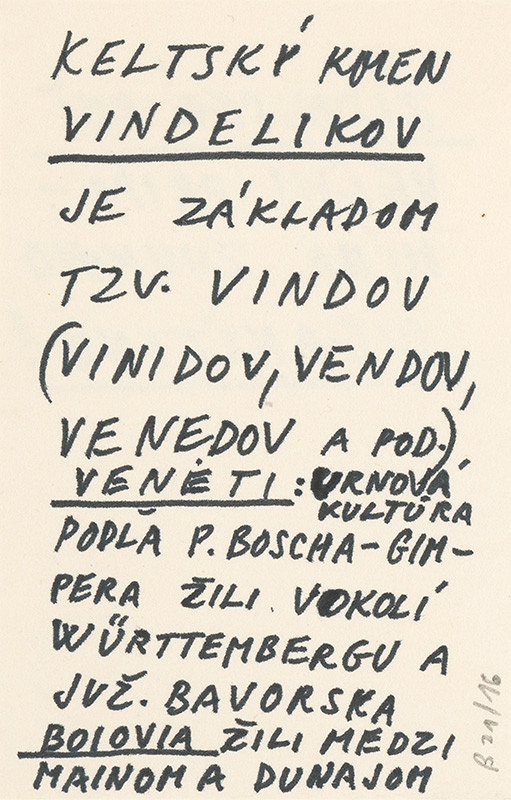 KELTSKÝ KMEN
VINDELIKOV
JE ZÁKLADOM
TZV. VINDOV
(VINIDOV, VENDOV,
VENEDOV A POD.)
VENĖTI: URNOVÁ
KULTÚRA
PODLĂ P. BOSCHA-GIM-
PERA ŽILI VOKOLÍ
WÜRTTEMBERGU A
JUŽ. BAVORSKA
BOIOVIA ŽILI MEDZI
MAINOM A DUNAJOM
B 21/16